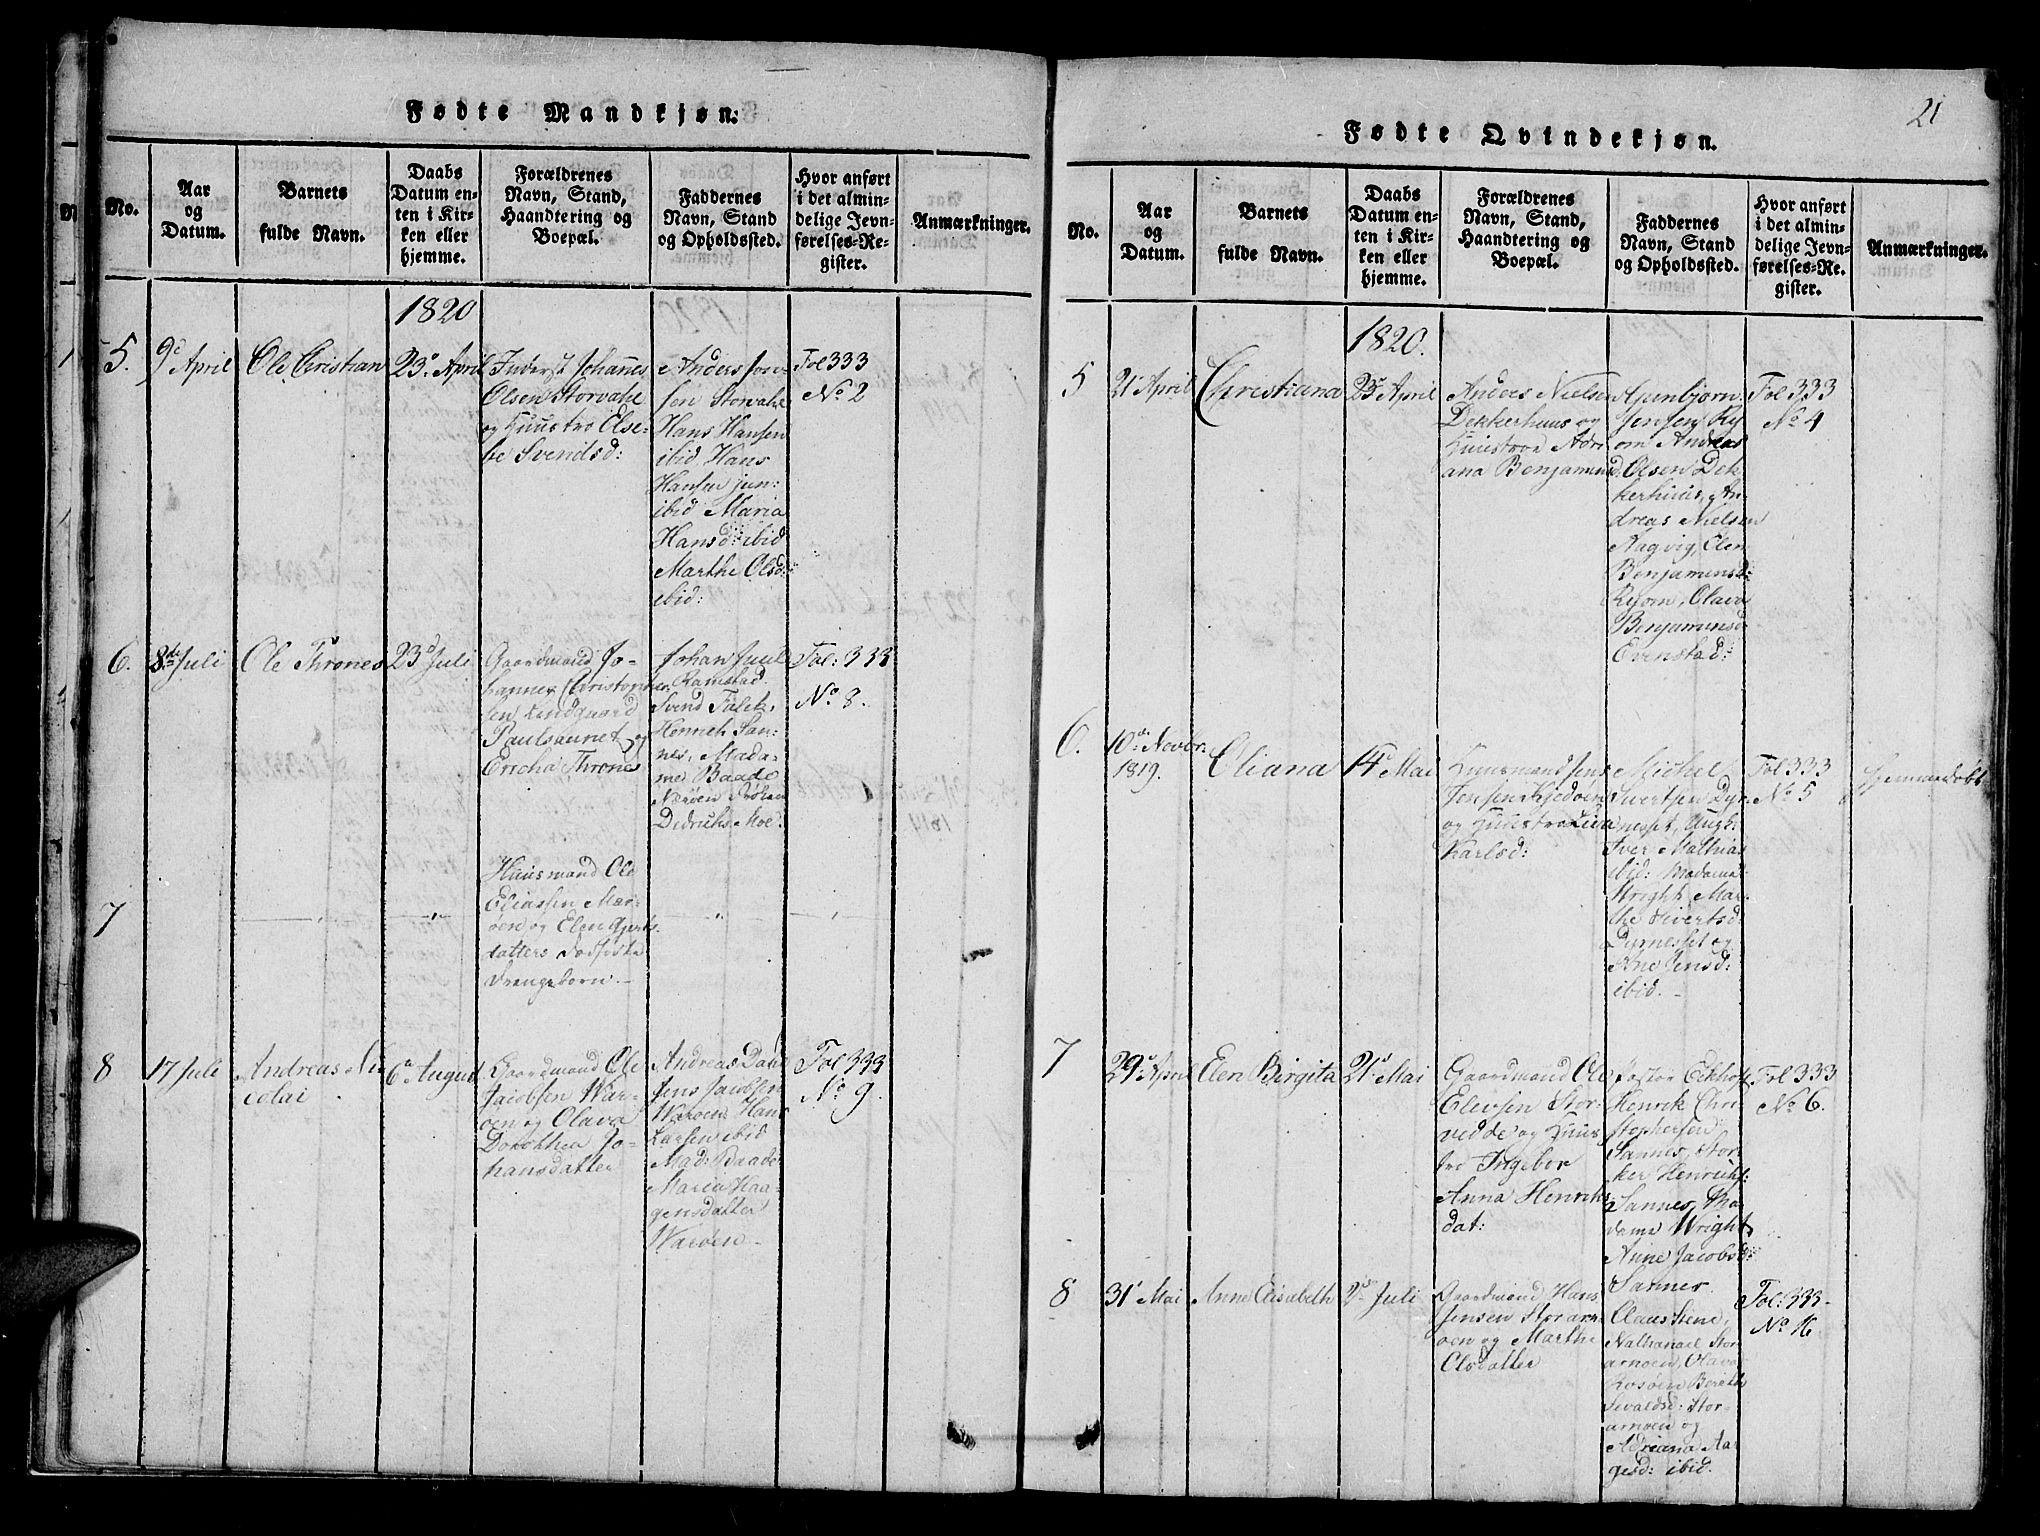 Fødte Mandkjøn.
No.
Aar
og
Datum.
Barnets
fulde Navn.
Daabs
Datum en-
ten i Kir-
ken eller
hjemme.
Forældrenes
Navn, Stand,
Haandtering og
Boepæl.
Faddernes
Navn, Stand
og Opholdssted.
Hvor anført
i det almin-
delige Jevn-
førelses-Re-
gister.
Anmærkninger.
1820
5.
9de April
Ole Christian
23de April
Inderst Johannes
Olsen Storvahl
og Huustro Else-
be Svendsd:
Anders Joen-
sen Storvahl
Hans Hansen
ibid, Hans
Hansen jun:
ibid Maria
Hansd: ibid
Marthe Olsd:
ibid:
Fol 333
No 2
6.
8de Juli
Ole Thrones
23d Juli
Gaardmand Jo-
hannes Christopher
sen Lindgaard
Paulsaunet og
Ericha Thrones
Johan Juul
Ramstad
Svend Falck,
Henrich San-
nes, Mada-
me Baade
Nærøen Frøken
Didrichs Moe.
Fol: 333
No 8.
7
Huusmand Ole
Eliassen Nær-
øen og Elen Gjerts
datters dødfødte
Drengebørn.
8
17 Juli
Andreas Ni-
colai
6te August
Gaardmand Ole
Jacobsen War-
øen og Olava
Dorothea Jo-
hansdatter
Andreas Dahl
Jens Jacobsen
Warøen, Hans
Larsen ibid
Mad: Baade
Maria Haa-
gensdatter
Warøen
Fol 333
No 9
21
Fødte Qvindekjøn.
No.
Aar
og
Datum.
Barnets
fulde Navn.
Daabs
Datum en-
ten i Kir-
ken eller
hjemme.
Forældrenes
Navn, Stand,
Haandtering og
Boepæl.
Faddernes
Navn, Stand
og Opholdssted.
Hvor anført
i det almin-
delige Jevn-
førelses-Re-
gister.
Anmærkninger.
1820.
5
21 April
Christiana
23de April
Anders Nielsen
Dekkerhuus og
Huustroe Adri
ana Benjaminsd.
Espenbjørn
Jensen Ry
om Andreas
Olsen Dek-
kerhuus, An-
dreas Nielsen
Aagvig, Elen
Benjaminsd:
Ryom, Olava
Benjaminsd
Evenstad:
Fol 333
No 4
6.
10de Novbr:
1819.
Oliana
14de Mai
Huusmand Jens
Jensen Kjedøen
og Huustroe Liva
Karlsd:
Michel
Sivertsen Dyr-
nesset, Ungk:
Iver Mathias
ibid: Madame
Wright, Mar-
the Sivertsd:
Dyrnesset og
Ane Jensd:
ibid.
Fol 333
No 5
Hjemmedøbt
7
29de April
Elen Birgita
21d Mai
Gaardmand Ole
Elevsen Stor-
vedde og Huus
tro Ingebor
Anna Henriks
dat:
Pastor Eckhoff
Henrik Chri-
stophersen
Sannes, Stor-
ker Henrichs:
Sannes, Ma-
dame Wright,
Anne Jacobsd:
Sannes.
Fol 333
No 6.
8
31 Mai
Anne Elisabeth
2den Juli
Gaardmand Hans
Jensen Storarn-
øen og Marthe
Olsdatter
Claus Stene,
Nathanael Stor
arnøen, Olava
Rosøen Bereth
Sevaldsd: Stor-
arnøen og
Adriana Aa-
gesd: ibid.
Fol: 333
No 16